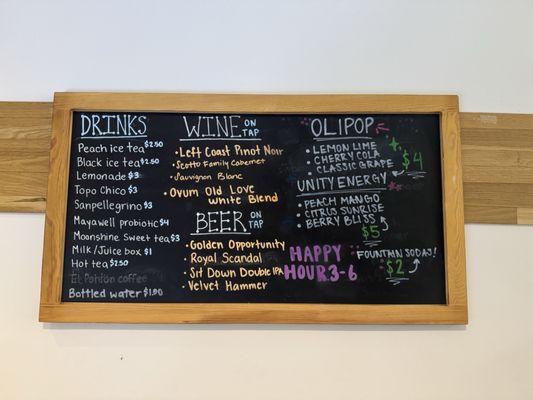 DRINKS
Peach ice tea $2.50
Black ice tea $2.50
Lemonade $3
Topo Chico $3
Sanpellegrino $3
Mayawell probiotic $4
Moonshine Sweet tea $3
Milk/Juice box $1
Hot tea $2.50
El Pohlon coffee
Bottled water $1.90
WINE ON TAP
• Left Coast Pinot Noir
• Scotto Family Cabernet
• Sauvignon Blanc
• Ovum Old Love
White Blend
BEER ON TAP
• Golden Opportunity
• Royal Scandal
• Sit Down Double IPA
• Velvet Hammer
OLIPOP
• LEMON LIME
• CHERRY COLA
• CLASSIC GRAPE
$4
UNITY ENERGY
• PEACH MANGO
• CITRUS SUNRISE
• BERRY BLISS
$5
HAPPY
HOUR 3-6
FOUNTAIN SODAS!
$2